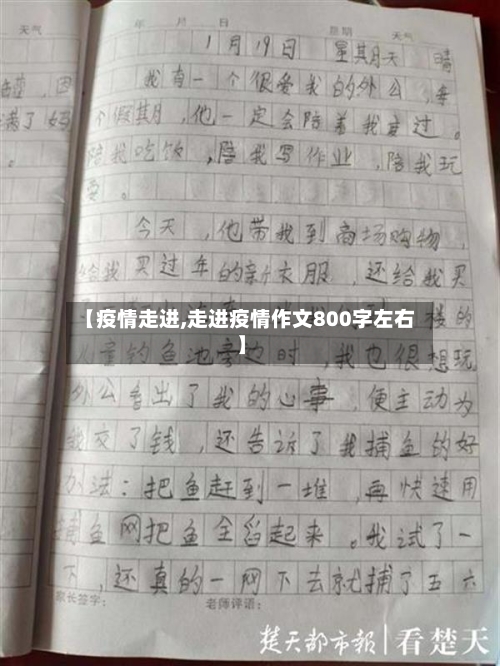 天气
年 月 日 星期 天气
1月19日 星期天 晴
我有一个很爱我的外公,每
个假期,他一定会陪着我度过。
陪我吃饭,陪我写作业,陪我玩
耍。
今天,他带我到商场购物,
给我买过年的新衣服,还给我买
【疫情走进,走进疫情作文800字左右
】
楼的
儿童钓鱼池旁边时,我也很想玩
外公看出了我的心事,便主动为
我交了钱,还告诉了我捕鱼的好
办法:把鱼赶到一堆,再快速用
捕鱼网把鱼全舀起来。我试了一
下,还真的一网下去就捕了五六
家长签字: 老师评语:
楚天都市报 | 看楚天